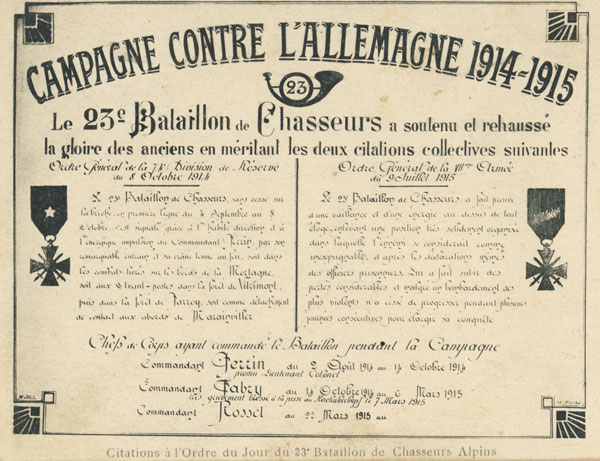 CAMPAGNE CONTRE L'ALLEMAGNE 1914-1915
23
Le 23e Bataillon de Chasseurs a soutenu et rehaussé
la gloire des anciens en méritant les deux citations collectives suivantes
Ordre Général de la 74e Division de Réserve
du 8 Octobre 1914
Le 23e Bataillon de Chasseurs, sans cesse sur
la brèche en première ligne du 4 Septembre au 8
Octobre s'est signalé grâce à l'habile direction et à
l'énergique impulsion du Commandant Ferrin, par son
remarquable entrain et sa crâne tenue au feu, soit dans
les combats livrés sur les bords de la Mortagne,
soit aux avant-postes dans la forêt de Vitrimont,
puis dans la forêt de Parroy, soit comme détachement
de contact aux abords de Marainviller
Ordre Général de la VIIme Armée
du 9 Juillet 1915
Le 23e Bataillon de Chasseurs, a fait preuve
d'une vaillance et d'une énergie au dessus de tout
éloge, enlevant une position très solidement organisée
dans laquelle l'ennemi se considérait comme
inexpugnable, d'après les déclarations mêmes
des officiers prisonniers. Lui a fait subir des
pertes considérables et malgré un bombardement des
plus violents n'a cessé de progresser pendant plusieurs
journées consécutives pour élargir sa conquête
Chefs de Corps ayant commandé le Bataillon pendant la Campagne
Commandant Ferrin du 2 Août 1914 au 14 Octobre 1914
promu Lieutenant Colonel
Commandant Fabry du 14 Octobre 1914 au 6 Mars 1915
très grièvement blessé à la prise du Reichakerkopf le 7 Mars 1915
Commandant Rosset du 22 Mars 1915 au
Citations à l'Ordre du Jour du 23e Bataillon de Chasseurs Alpins